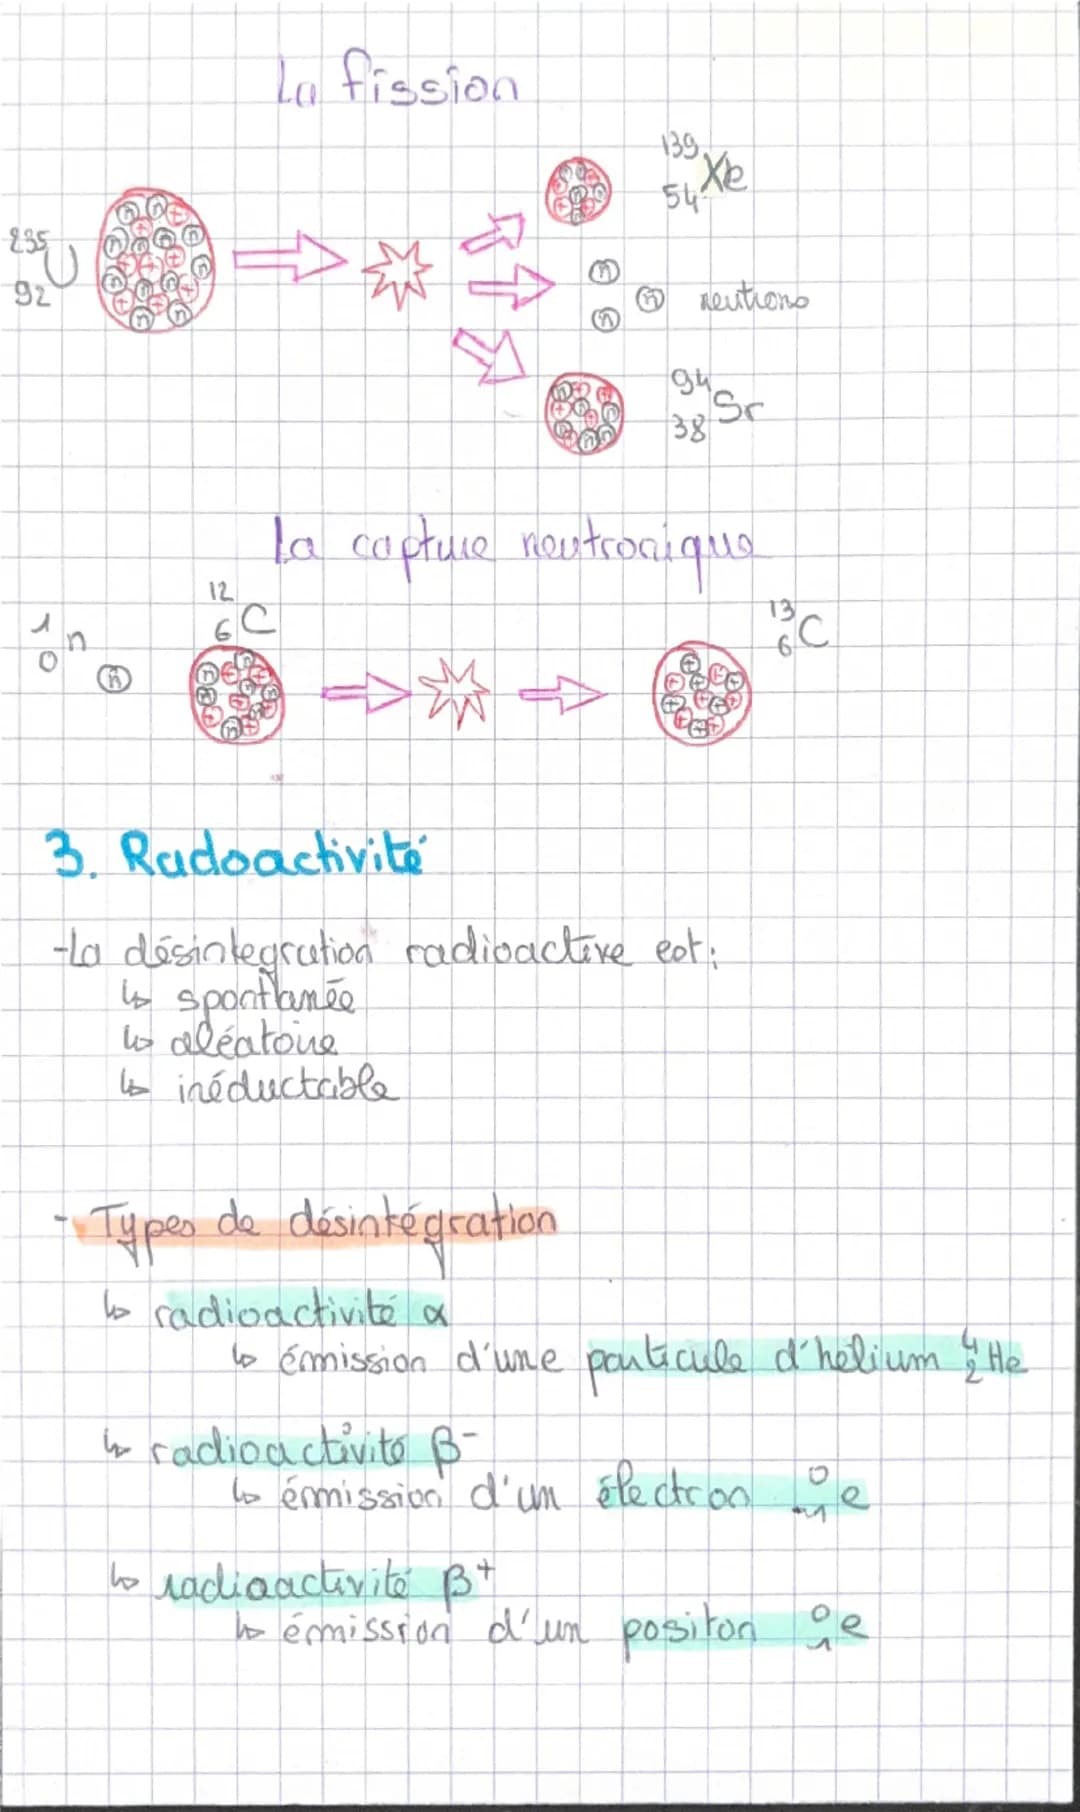 La fission
139
54 Xe
235
92 U
n n n neutrons
94
38 Sr
La capture neutronique
1
0 n
n
12
6 C
13
6 C
3. Radoactivité
-La désintegration radioactive est:
↳ spontanée
↳ aléatoire
↳ inéductable
- Types de désintégration
↳ radioactivité α
↳ émission d'une particule d'hélium 4 2 He
↳ radioactivité β-
↳ émission d'un électron 0 -1 e
↳ radioactivité β+
↳ émission d'un positon 0 1 e